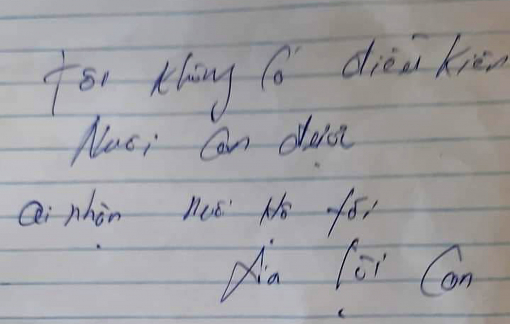 Tôi không có điều kiện
Nuôi con được
ai nhận nuôi nó tôi
Xin lỗi con